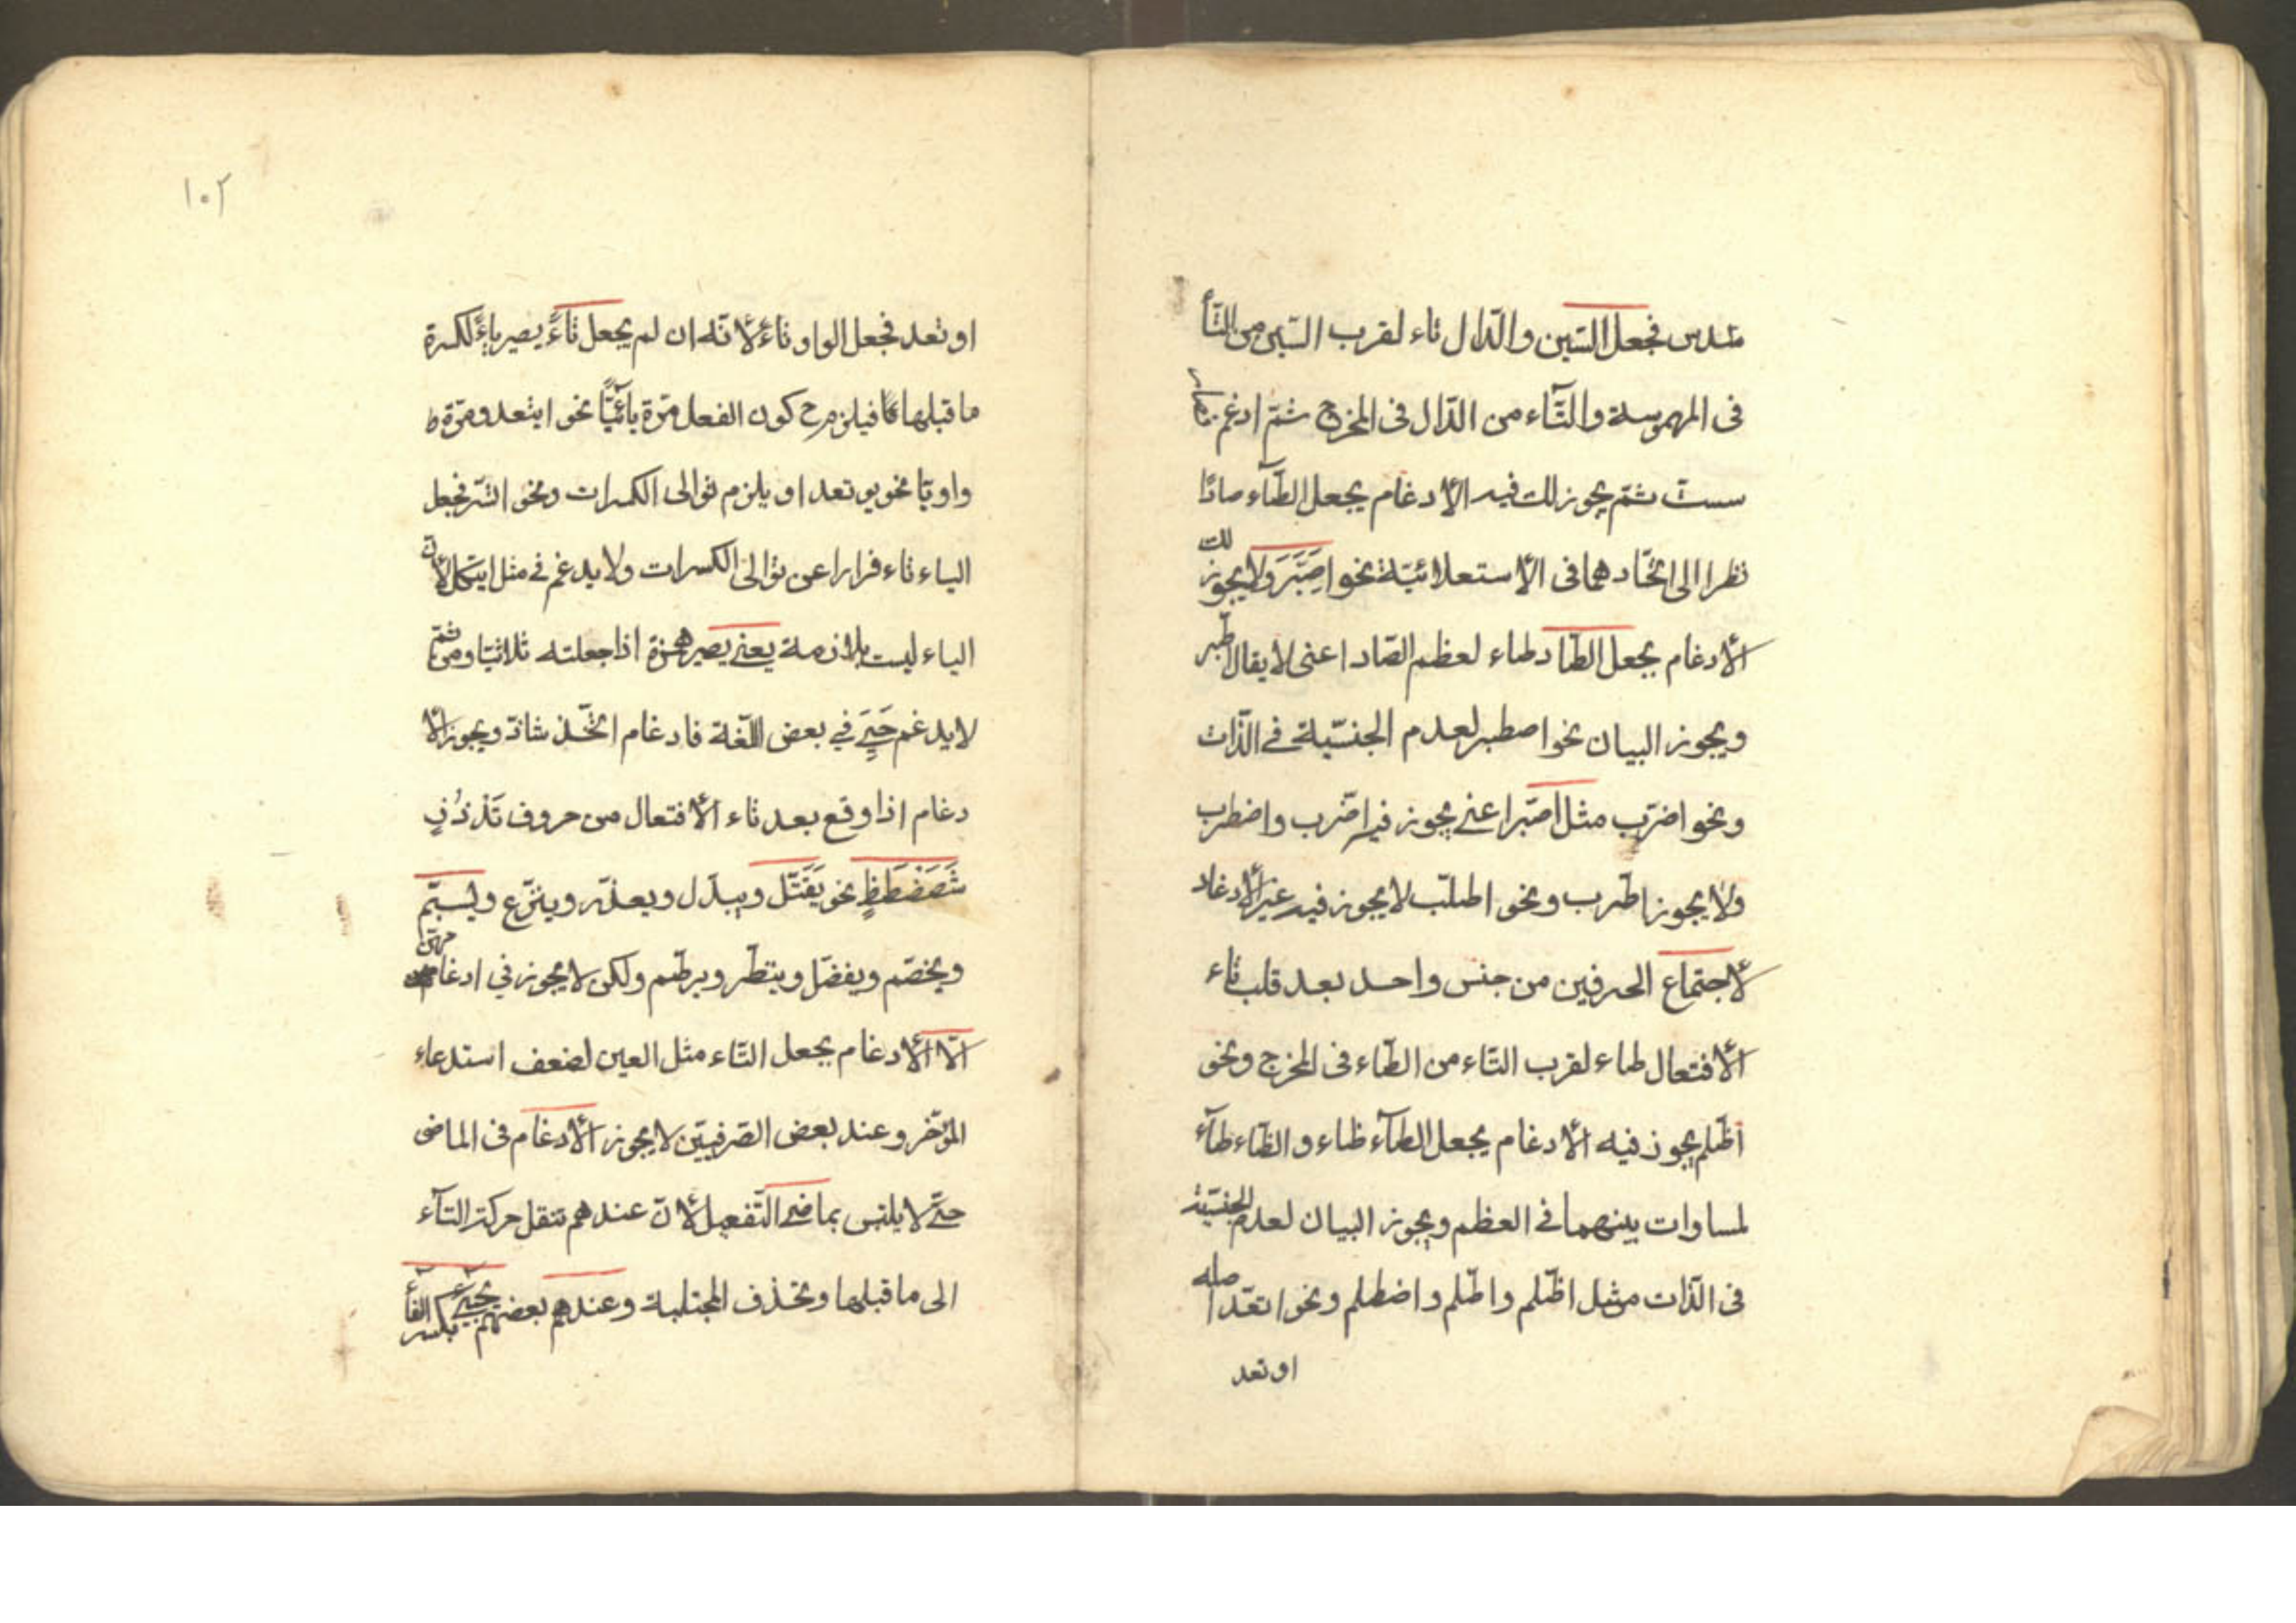 سدس فجعل السّين والدّال تاء لقرب السّين من التّاء
فى المهموسة والتّاء من الدّال فى المخرج ثمّ ادغم
ستّ ثمّ يجوز لك فيه الأدغام بجعل الطّاء صادًا
نظرا الى اتّحادهما فى الأستعلائيّة نحو اصَّبَرَ ولا يجوز لك
الأدغام بجعل الطّاد طاء لعظم الصّاد اعنى لا يقال اطّبر
ويجوز البيان نحو اصطبر لعدم الجنسيّة فى الذّات
ونحو اضرّب مثل اصّبر اعنى يجوز فيه اضّرب واضطرب
ولا يجوز اطّرب ونحو اطلب لا يجوز فيه غير الأدغام
لأجتماع الحرفين من جنس واحد بعد قلب تاء
الأفتعال طاء لقرب التّاء من الطّاء فى المخرج ونحو
اظّلم يجوز فيه الأدغام بجعل الطّآء ظاء والظّاء طآء
لمساوات بينهما فى العظم ويجوز البيان لعدم الجنسيّة
فى الذّات مثل اظّلم واطّلم واضطلم ونحو اتعّد اصله
او تعد
١٠٢
او تعد فجعل الواو تاء لأنّه ان لم يجعل تاءً يصير ياءً لكسرة
ما قبلها فيلزم ح كون الفعل مرّة يائيًّا نحو ايتعد ومرّة
واويّا نحو يوتعد او يلزم توالى الكسرات ونحو اتّسر فجعل
الياء تاء فرارا عن توالى الكسرات ولا يدغم فى مثل ايتكل لأنّ
الياء ليست بلازمة يعنى يصير همزة اذا جعلته ثلاثيّا ومن ثمّ
لا يدغم حَيِىَ في بعض اللّغة فادغام اتّخذ شاذّ ويجوز الأ
دغام اذا وقع بعد تاء الأفتعال من حروف تَدْذُزٍ
سَصَضَطَظٍ نحو يَقَتّل ويبدّل ويعذّر وينزّع ويبسّم
ويخصّم ويفضّل وينظّر ويرطّم ولكن لا يجوز في ادغامهنّ
الّا الأدغام بجعل التّاء مثل العين لضعف استدعاء
المؤخّر وعند بعض الصّرفيّين لا يجوز الأدغام فى الماضى
حتّى لا يلتبس بماضى التّفعيل لأنّ عندهم تنقل حركة التآء
الى ما قبلها وتحذف المجتلبة وعندهم بعضهم يجيئ بكسر الفاء